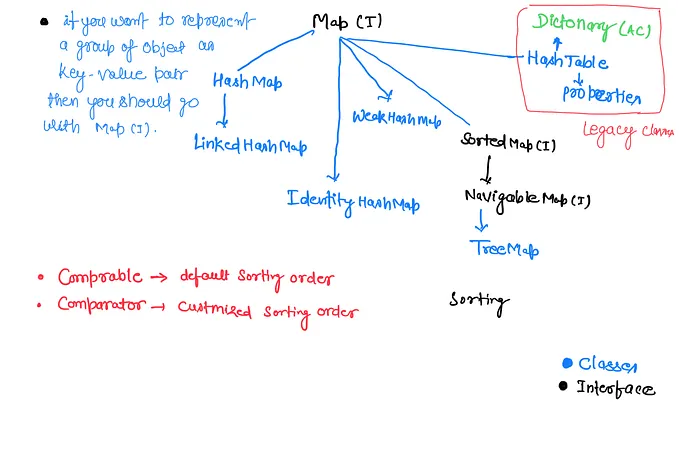 • if you want to represent
a group of object as
key-value pair
then you should go
with Map(I).
Map (I)
HashMap
LinkedHashMap
IdentityHashMap
WeakHashMap
Sorted Map (I)
NavigableMap (I)
TreeMap
Dictonary (AC)
HashTable
Properties
Legacy Classes
• Comprable → default sorting order
• Comparator → Custmized sorting order
Sorting
• Classes
• Interface